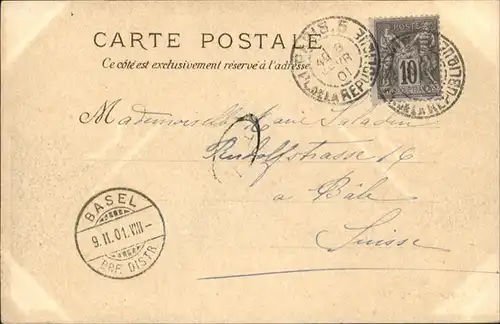 CARTE POSTALE
Ce côté est exclusivement réservé à l'adresse
PARIS. 5
PL. DE LA REPUBLIQUE
10
Mademoiselle Marie Saladin
Rudolfstrasse 16
à Bâle
Suisse
BASEL
9.II.01.VIII-
BRF. DISTR.